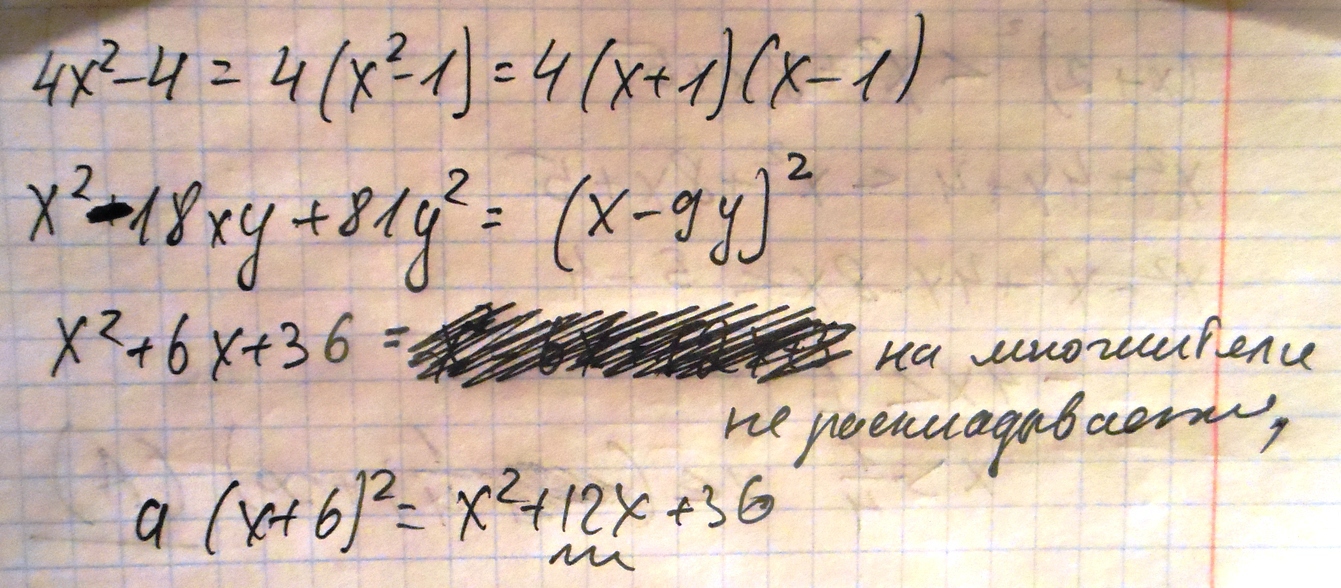 4x²-4 = 4(x²-1) = 4(x+1)(x-1)
x²-18xy+81y² = (x-9y)²
x²+6x+36 = на множители
не раскладывается,
а (x+6)² = x²+12x+36